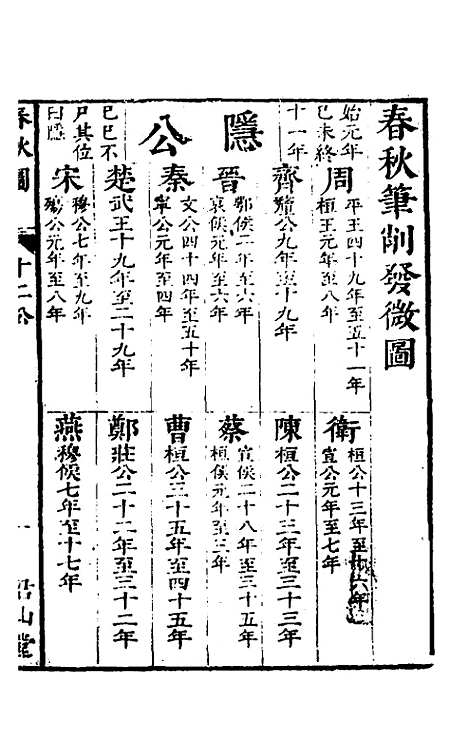 春秋筆削發微圖
隱公
始元年
己未終
十一年
己巳不
尸其位
曰隱
周
平王四十九年至五十一年
桓王元年至八年
齊
釐公九年至十九年
晉
鄂侯二年至六年
哀侯元年至六年
秦
文公四十四年至五十年
寧公元年至四年
楚
武王十九年至二十九年
宋
穆公七年至九年
殤公元年至八年
衛
桓公十三年至十六年
宣公元年至七年
陳
桓公二十三年至三十三年
蔡
宣侯二十八年至三十五年
桓侯元年至三年
曹
桓公三十五年至四十五年
鄭
莊公二十二年至三十二年
燕
穆侯七年至十七年
春秋圖
十二公
一